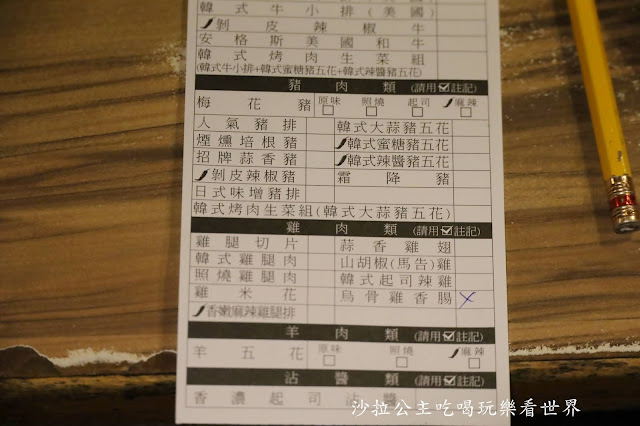 韓式牛小排(美國)
剝皮辣椒牛
安格斯美國和牛
韓式烤肉生菜組
(韓式牛小排+韓式蜜糖豬五花+韓式辣醬豬五花)
豬肉類 (請用☑註記)
梅花豬 原味 照燒 起司 麻辣
人氣豬排 韓式大蒜豬五花
煙燻培根豬 韓式蜜糖豬五花
招牌蒜香豬 韓式辣醬豬五花
剝皮辣椒豬 霜降豬
日式味增豬排
韓式烤肉生菜組(韓式大蒜豬五花)
雞肉類 (請用☑註記)
雞腿切片 蒜香雞翅
韓式雞腿肉 山胡椒(馬告)雞
照燒雞腿肉 韓式起司辣雞
雞米花 烏骨雞香腸 ×
香嫩麻辣雞腿排
羊肉類 (請用☑註記)
羊五花 原味 照燒 麻辣
沾醬類 (請用☑註記)
香濃起司沾醬
沙拉公主吃喝玩樂看世界